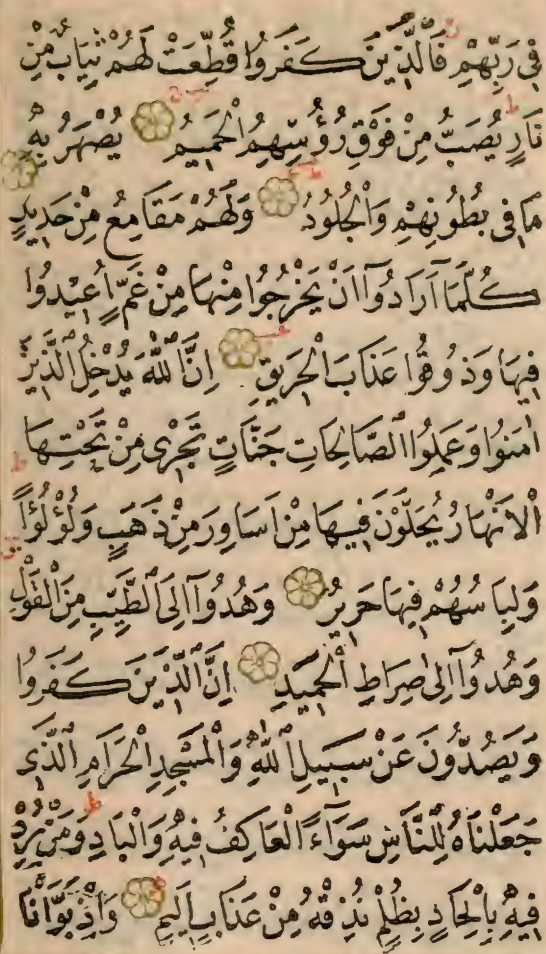 فِي رَبِّهِمْ فَالَّذِينَ كَفَرُوا قُطِّعَتْ لَهُمْ ثِيَابٌ مِنْ
نَارٍ يُصَبُّ مِنْ فَوْقِ رُؤُسِهِمُ الْحَمِيمُ يُصْهَرُ بِهِ
مَا فِي بُطُونِهِمْ وَالْجُلُودُ وَلَهُمْ مَقَامِعُ مِنْ حَدِيدٍ
كُلَّمَا أَرَادُوا أَنْ يَخْرُجُوا مِنْهَا مِنْ غَمٍّ أُعِيدُوا
فِيهَا وَذُوقُوا عَذَابَ الْحَرِيقِ اِنَّ اللّٰهَ يُدْخِلُ الَّذِينَ
اٰمَنُوا وَعَمِلُوا الصَّالِحَاتِ جَنَّاتٍ تَجْرِي مِنْ تَحْتِهَا
الْاَنْهَارُ يُحَلَّوْنَ فِيهَا مِنْ اَسَاوِرَ مِنْ ذَهَبٍ وَلُؤْلُؤًا
وَلِبَاسُهُمْ فِيهَا حَرِيرٌ وَهُدُوا اِلَى الطَّيِّبِ مِنَ الْقَوْلِ
وَهُدُوا اِلٰى صِرَاطِ الْحَمِيدِ اِنَّ الَّذِينَ كَفَرُوا
وَيَصُدُّونَ عَنْ سَبِيلِ اللّٰهِ وَالْمَسْجِدِ الْحَرَامِ الَّذِي
جَعَلْنَاهُ لِلنَّاسِ سَوَاءً الْعَاكِفُ فِيهِ وَالْبَادِ وَمَنْ يُرِدْ
فِيهِ بِاِلْحَادٍ بِظُلْمٍ نُذِقْهُ مِنْ عَذَابٍ اَلِيمٍ وَاِذْ بَوَّاْنَا